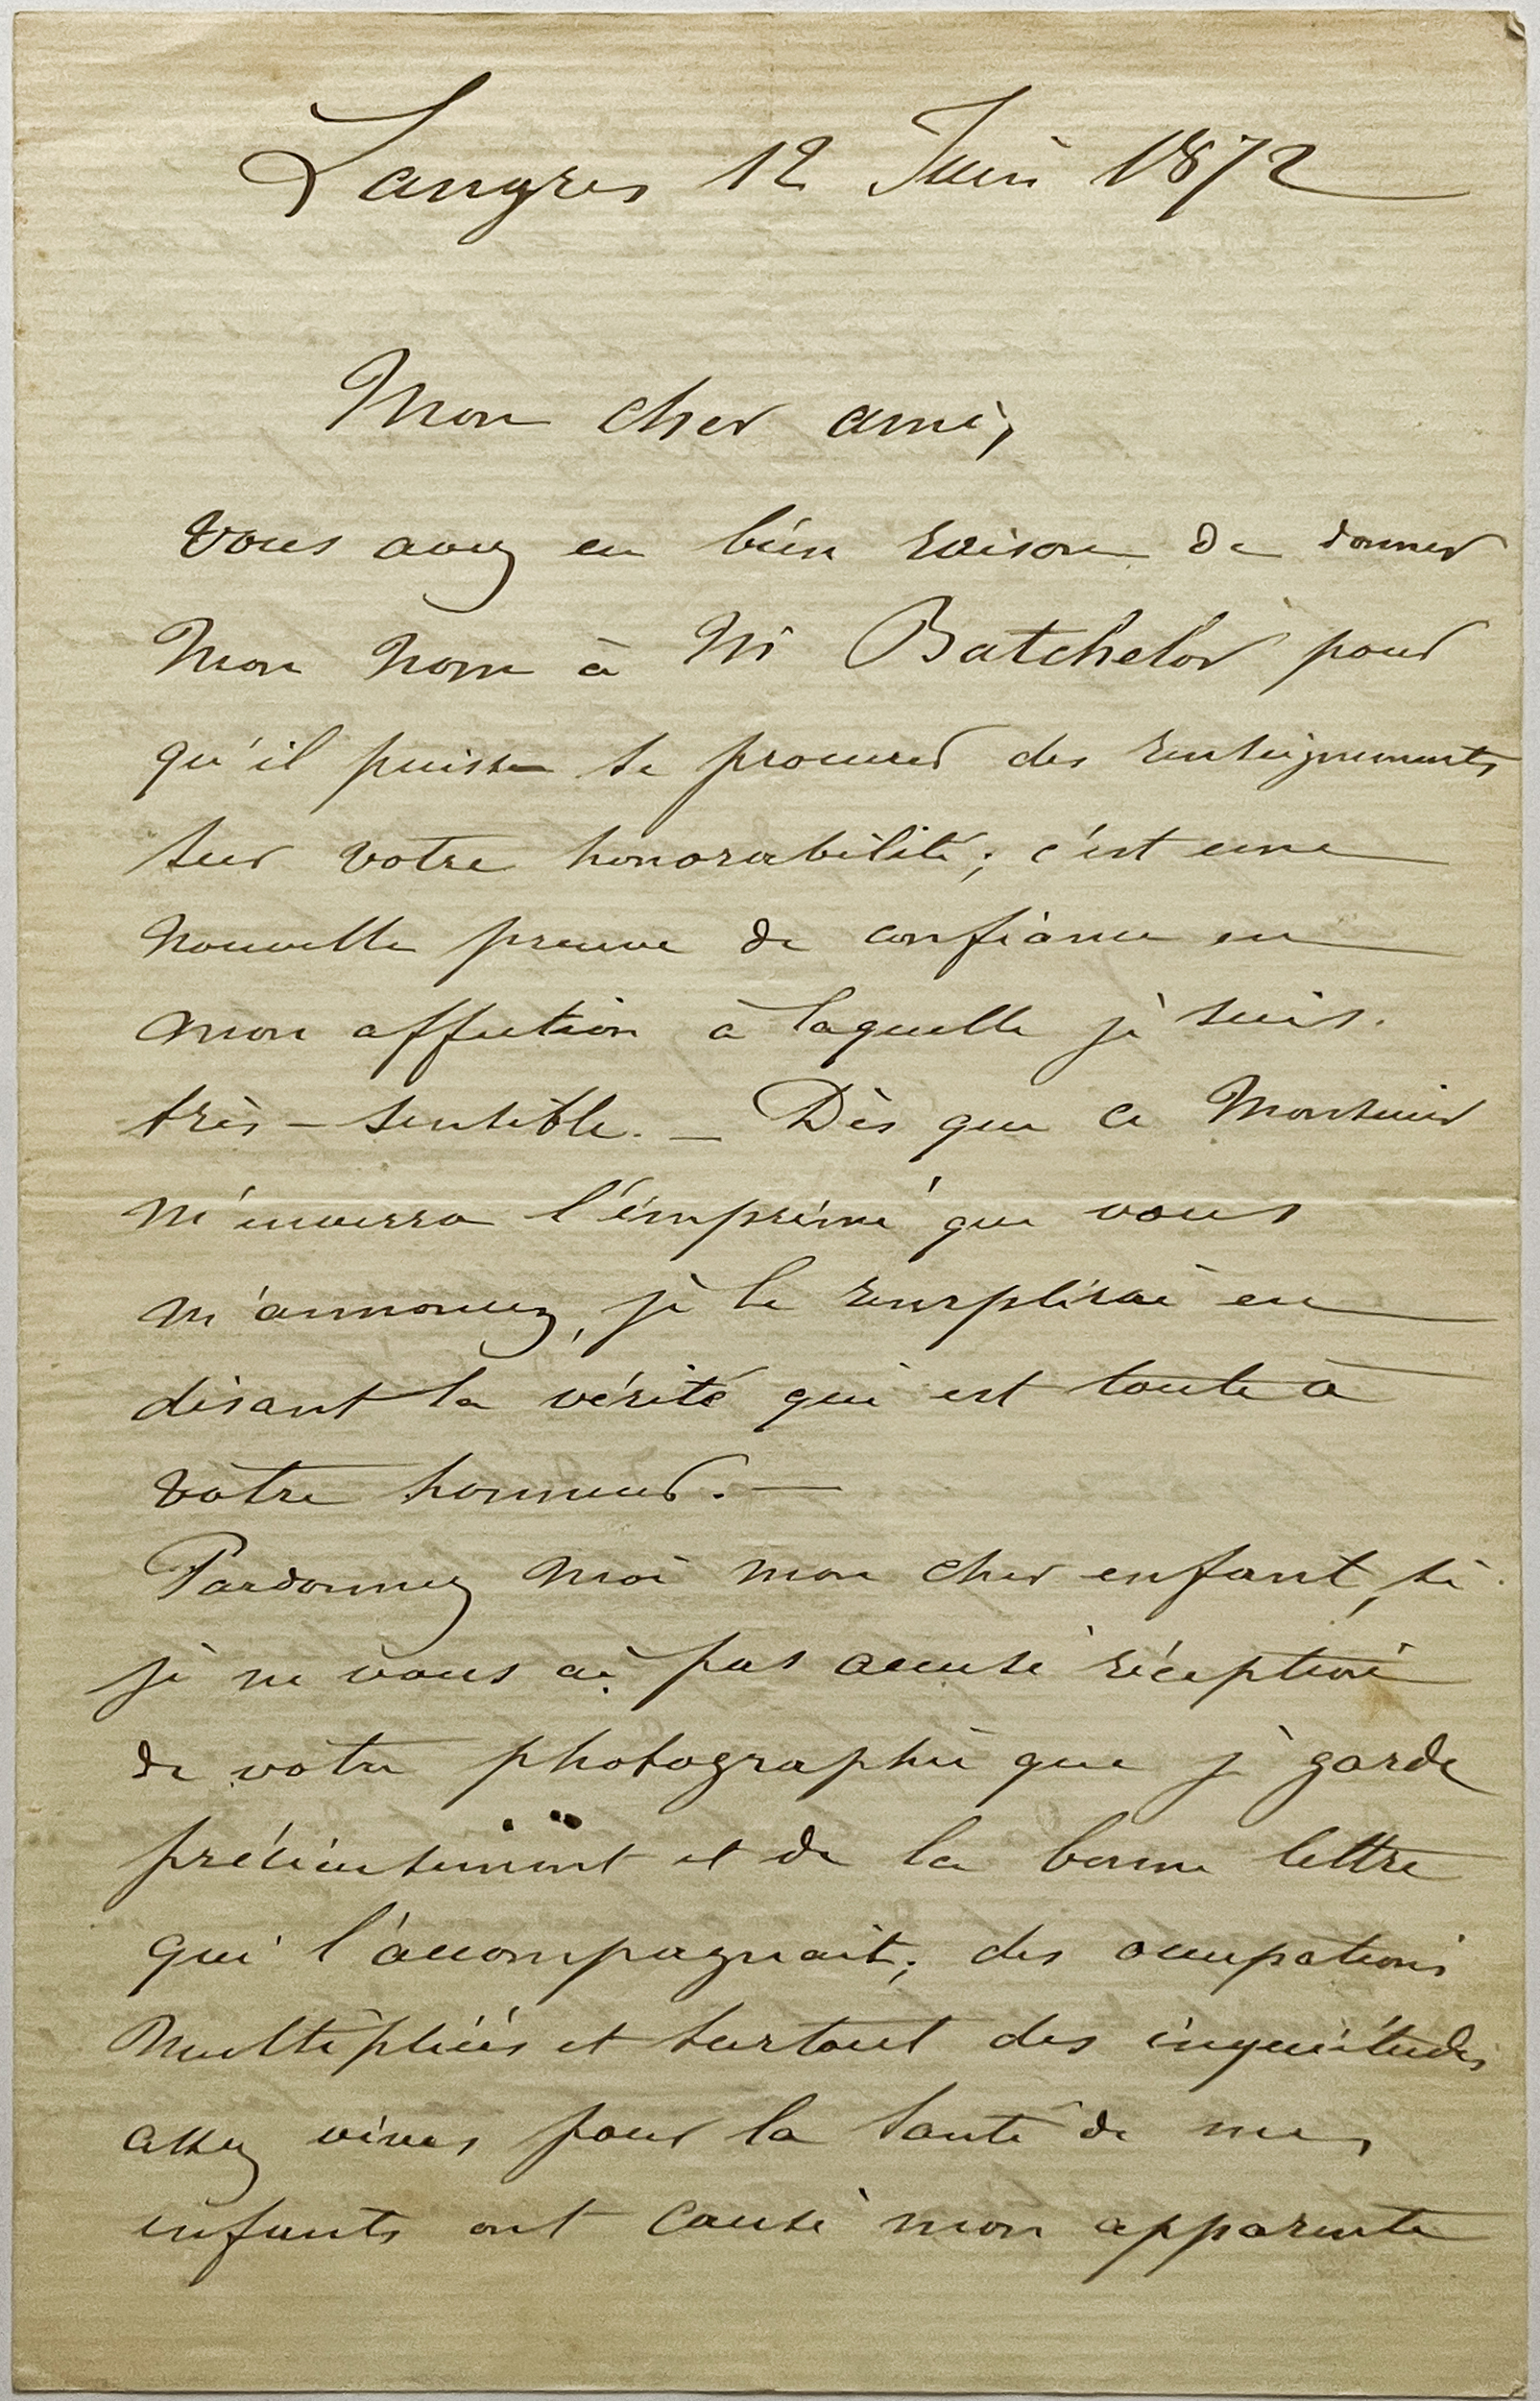 Langres 12 Juin 1872
Mon cher ami,
Vous avez eu bien raison de donner
mon nom à Mr Batchelor pour
qu'il puisse se procurer des renseignements
sur votre honorabilité; c'est une
nouvelle preuve de confiance en
mon affection à laquelle je suis
très-sensible. — Dès que ce Monsieur
m'enverra l'imprimé que vous
m'annoncez, je le remplirai en
disant la vérité qui est toute à
votre honneur. —
Pardonnez moi mon cher enfant, si
je ne vous ai pas accusé réception
de votre photographie que je garde
précieusement et de la bonne lettre
qui l'accompagnait; des occupations
multipliées et surtout des inquiétudes
assez vives pour la santé de mes
enfants ont causé mon apparente